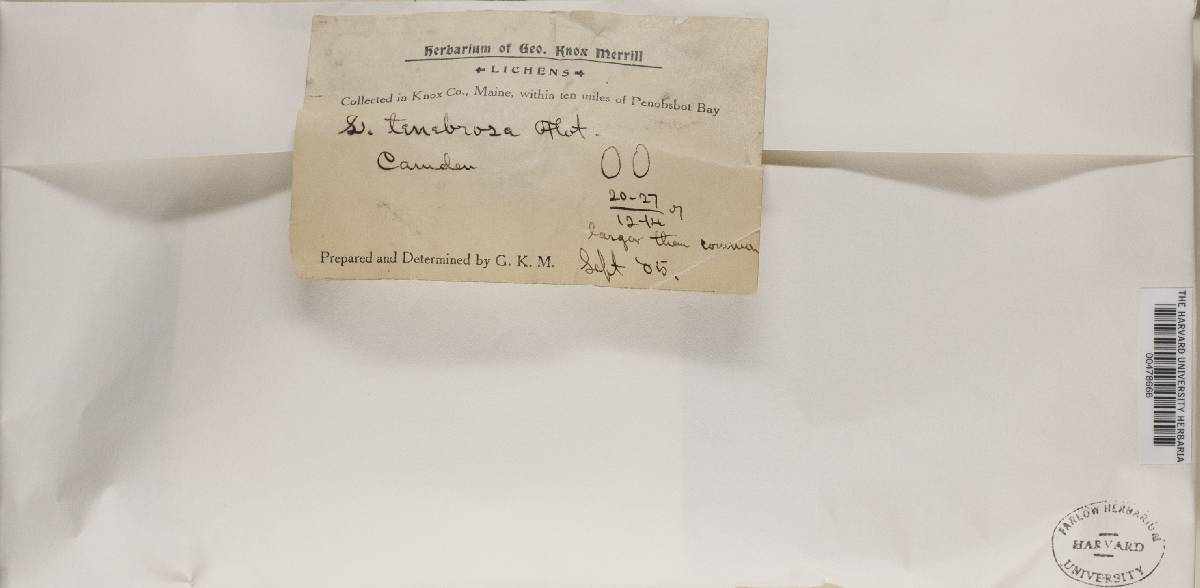 Herbarium of Geo. Knox Merrill
LICHENS
Collected in Knox Co., Maine, within ten miles of Penobsbot Bay
L. tenebrosa Flot.
Camden
20-27
12-14
larger than common
Prepared and Determined by G. K. M.
Sept '05.
THE HARVARD UNIVERSITY HERBARIA
00478666
FARLOW HERBARIUM
HARVARD
UNIVERSITY